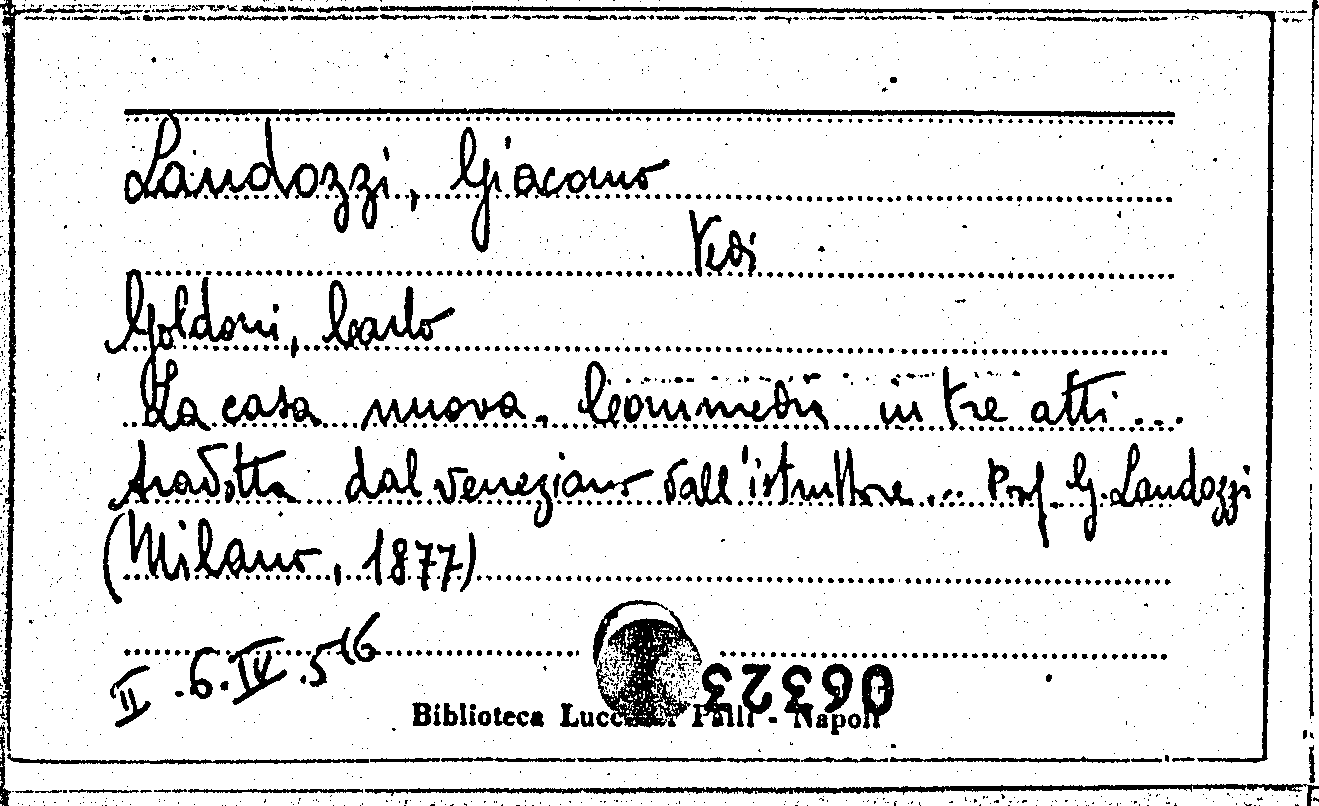 Landozzi, Giacomo
Vedi
Goldoni, Carlo
La casa nuova. Commedia in tre atti...
tradotta dal veneziano dall'istruttore... Prof. G. Landozzi
(Milano, 1877)
II.6.IV.5 16
06323
Biblioteca Lucchesi Palli - Napoli